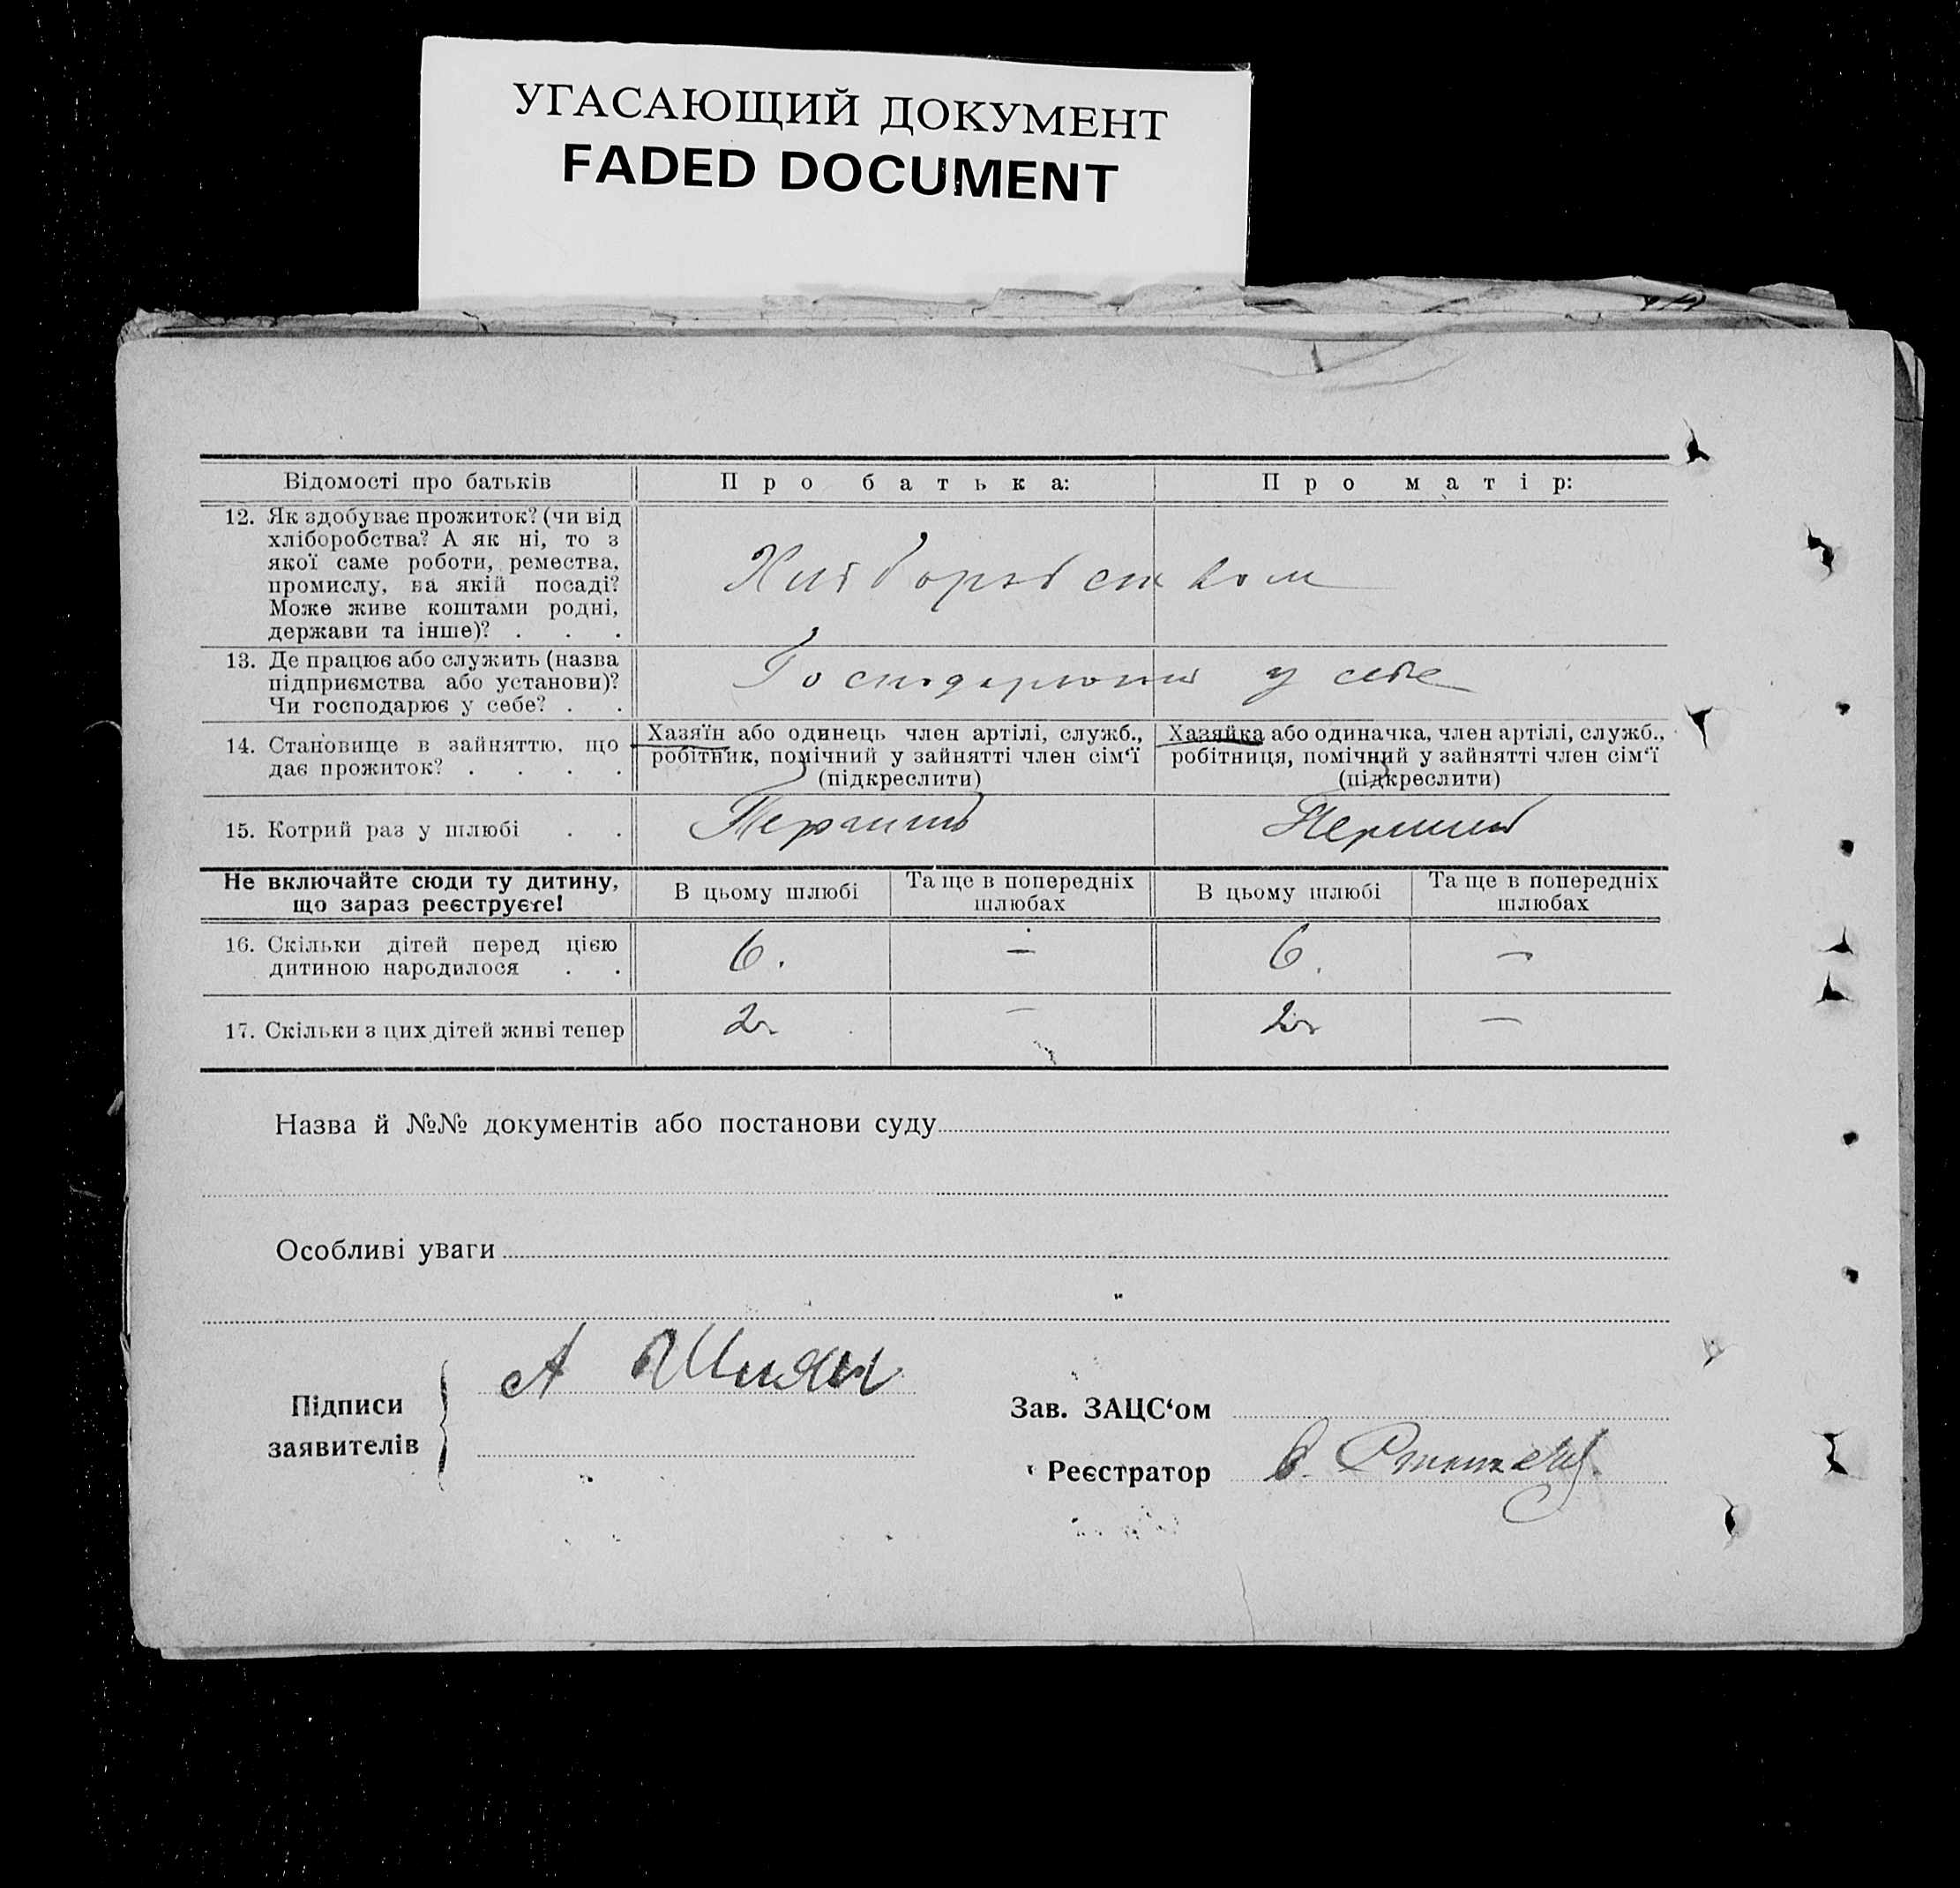 УГАСАЮЩИЙ ДОКУМЕНТ
FADED DOCUMENT
Відомості про батьків
Про батька:
Про матір:
12. Як здобуває прожиток? (чи від
хліборобства? А як ні, то з
якої саме роботи, ремества,
промислу, на якій посаді?
Може живе коштами родні,
держави та інше)? . . .
Хліборобством
13. Де працює або служить (назва
підприємства або установи)?
Чи господарює у себе? . .
Господарюють у себе
14. Становище в зайняттю, що
дає прожиток? . . . .
Хазяїн або одинець член артілі, служб.,
робітник, помічний у зайнятті член сім‘ї
(підкреслити)
Хазяйка або одиначка, член артілі, служб.,
робітниця, помічний у зайнятті член сім‘ї
(підкреслити)
15. Котрий раз у шлюбі . .
Перший
Перший
Не включайте сюди ту дитину,
що зараз реєструєте!
В цьому шлюбі
Та ще в попередніх
шлюбах
В цьому шлюбі
Та ще в попередніх
шлюбах
16. Скільки дітей перед цією
дитиною народилося . .
6. — 6. —
17. Скільки з цих дітей живі тепер
2 — 2 —
Назва й №№ документів або постанови суду
Особливі уваги
Підписи
заявителів
А Шиян
Зав. ЗАЦС‘ом
Реєстратор